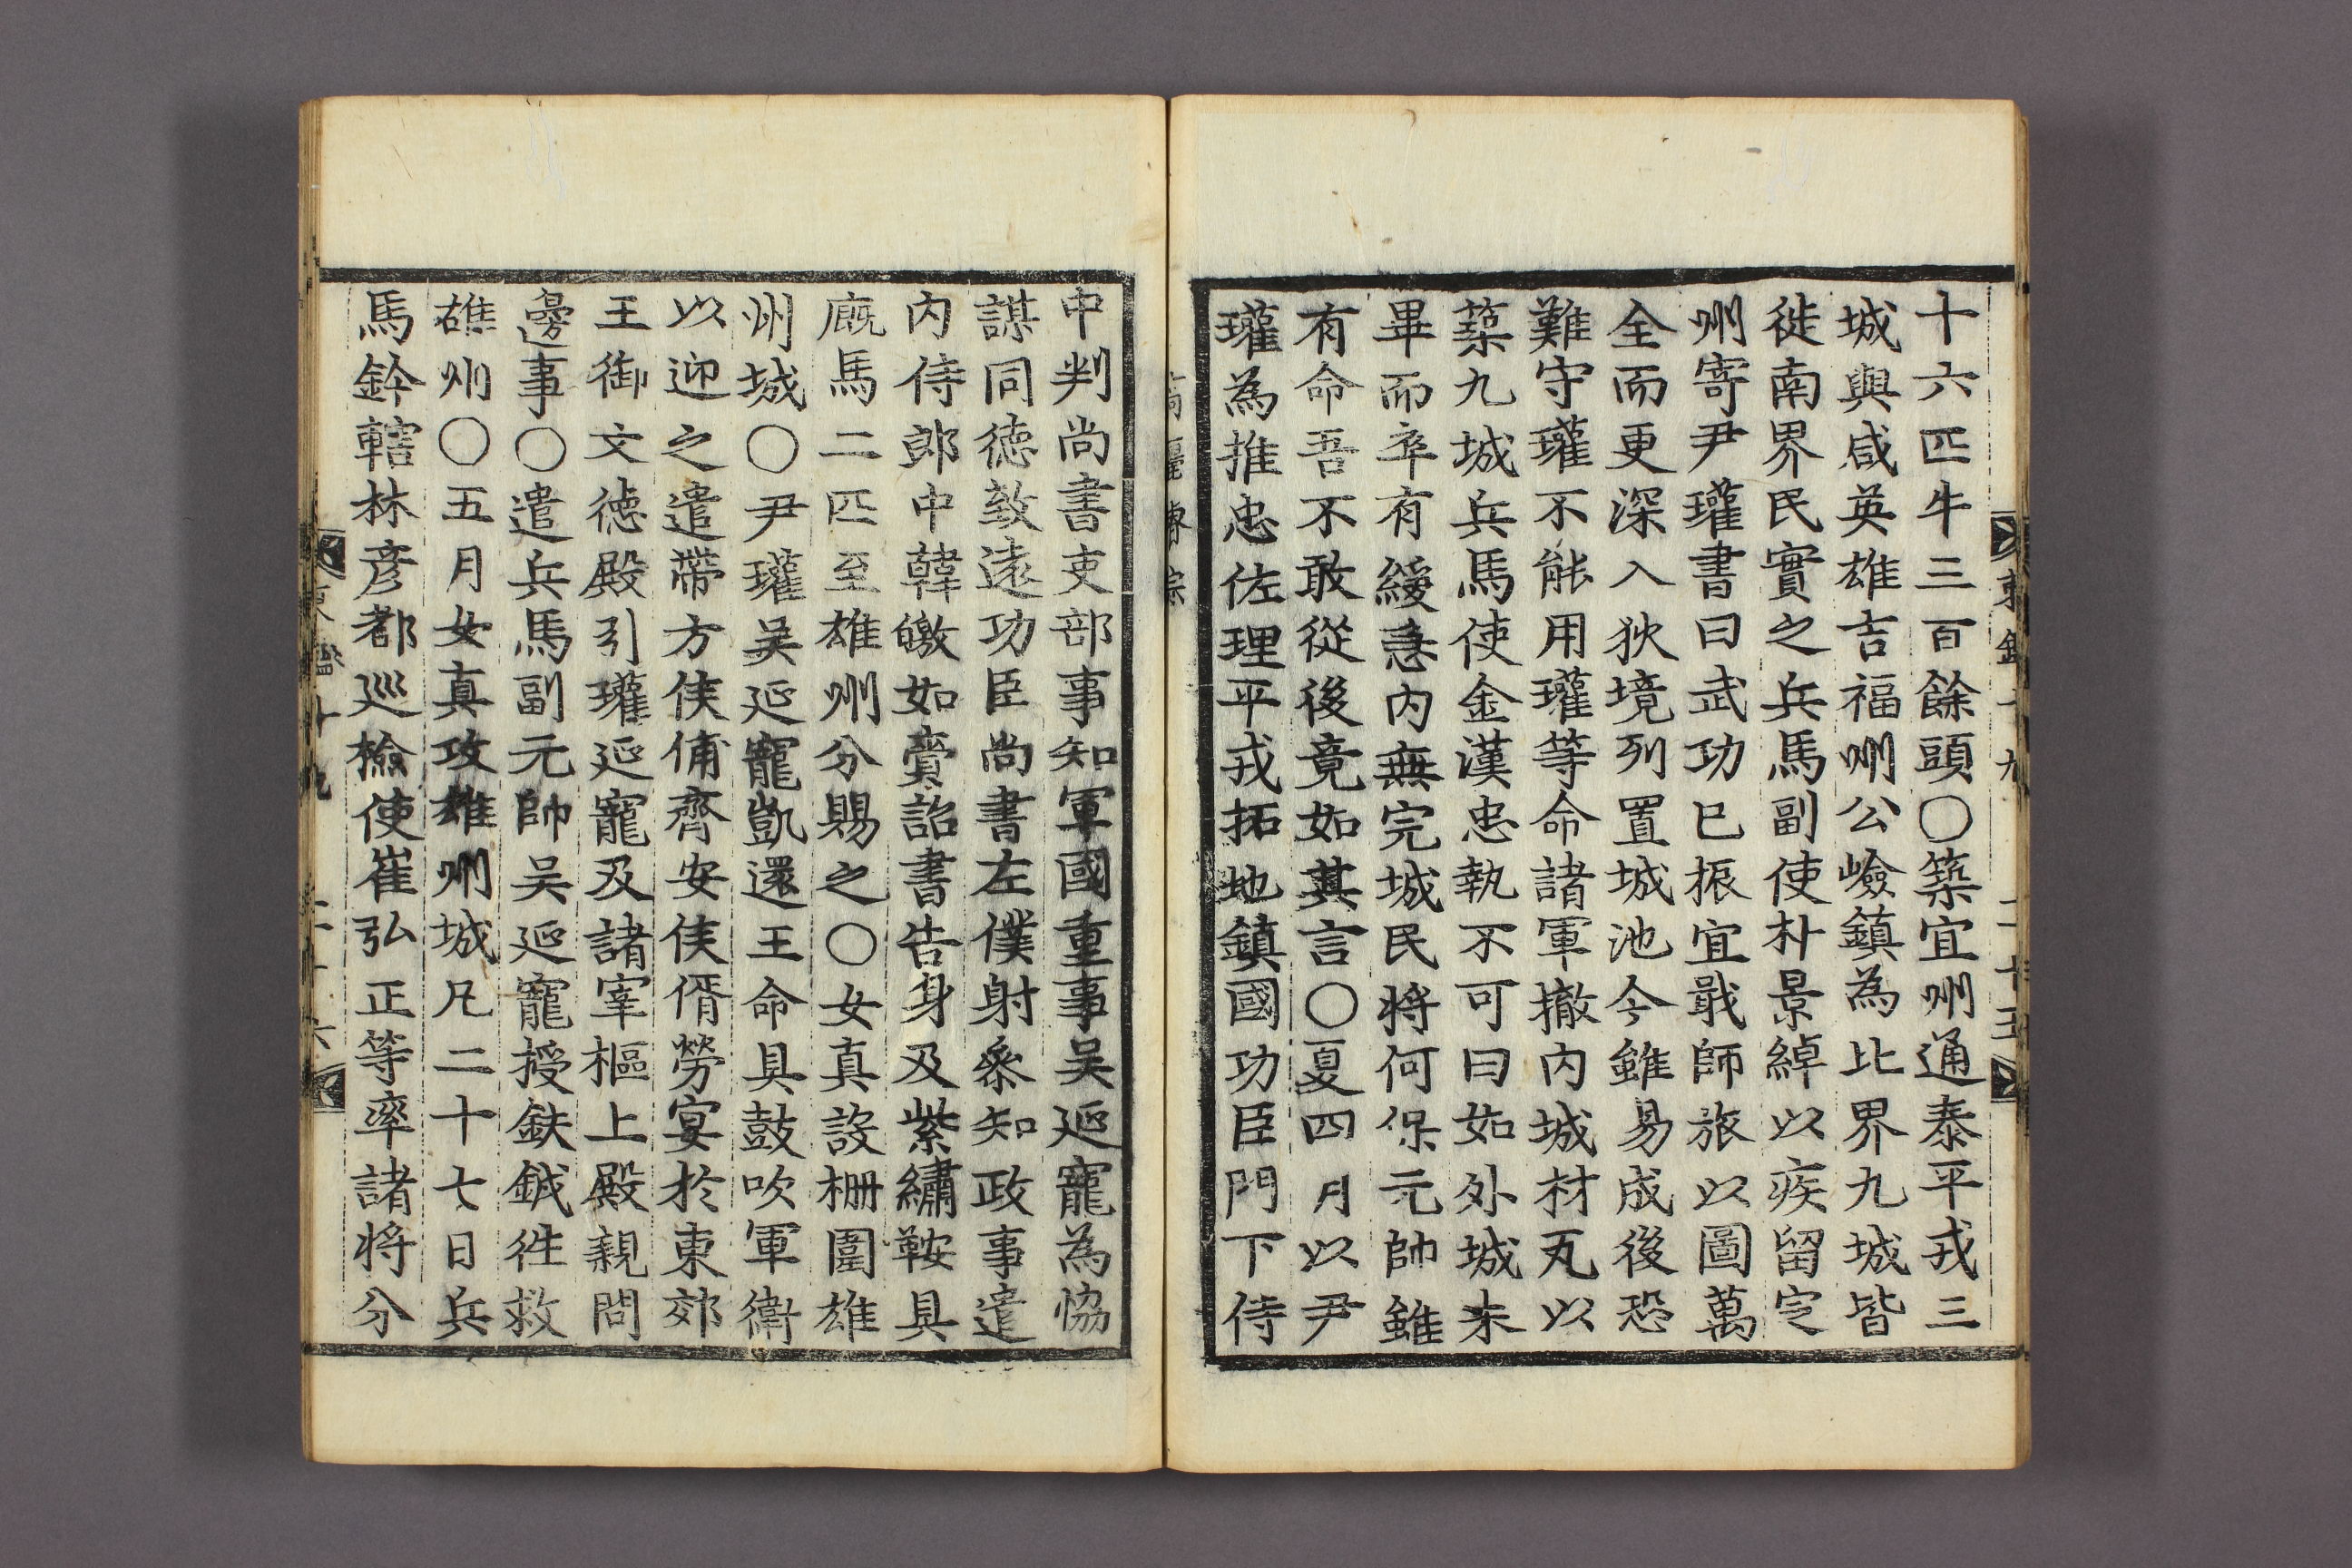 十六匹牛三百餘頭〇築宜州通泰平戎三
城與咸英雄吉福州公嶮鎮為北界九城皆
徙南界民實之兵馬副使朴景綽以疾留定
州寄尹瓘書曰武功已振宜戢師旅以圖萬
全而更深入狄境列置城池今雖易成後恐
難守瓘不能用瓘等命諸軍撤内城材瓦以
築九城兵馬使金漢忠執不可曰如外城未
畢而卒有緩急内無完城民將何保元帥雖
有命吾不敢從後竟如其言〇夏四月以尹
瓘為推忠佐理平戎拓地鎮國功臣門下侍
中判尚書吏部事知軍國重事吴延寵為恊
謀同徳致遠功臣尚書左僕射叅知政事遣
内侍郎中韓皦如賫詔書告身及紫繡鞍具
廐馬二匹至雄州分賜之〇女真設柵圍雄
州城〇尹瓘吴延寵凱還王命具鼓吹軍衛
以迎之遣帶方侯俌齊安侯偦勞宴於東郊
王御文徳殿引瓘延寵及諸宰樞上殿親問
邊事〇遣兵馬副元帥吴延寵授鈇鉞徃救
雄州〇五月女真攻雄州城凡二十七日兵
馬鈐轄林彦都巡檢使崔弘正等率諸將分